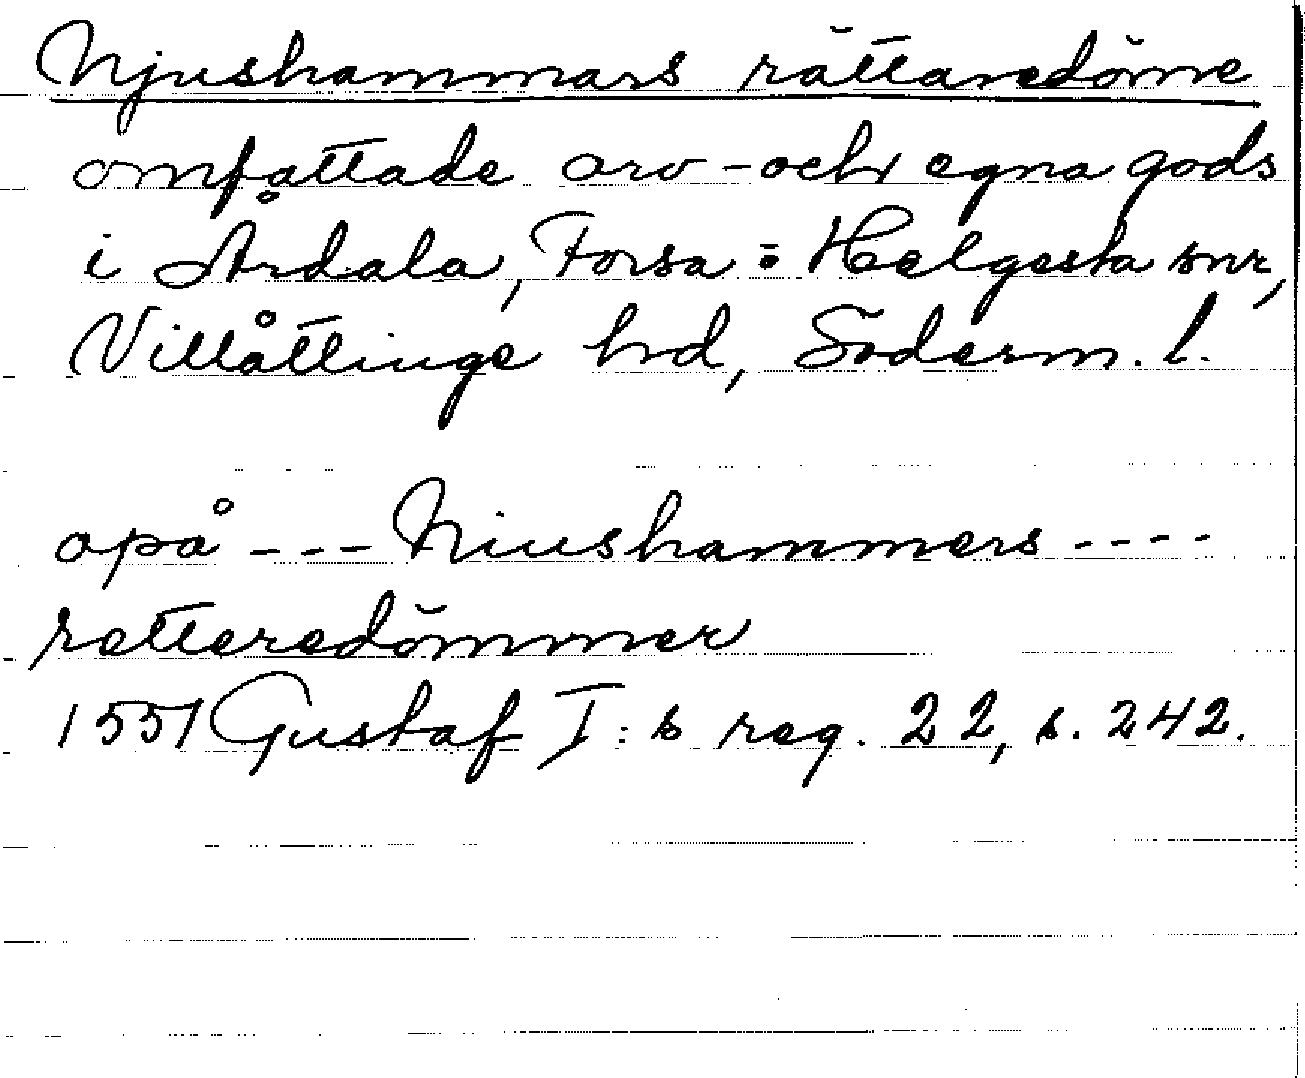 Njushammars rättaredöme
omfattade arv- och egna gods
i Årdala, Forsa o Helgesta snr,
Villåttinge hd, Söderm. l.
opå --- Niushammers ----
retteredömmer
1551 Gustaf I:s reg. 22, s. 242.